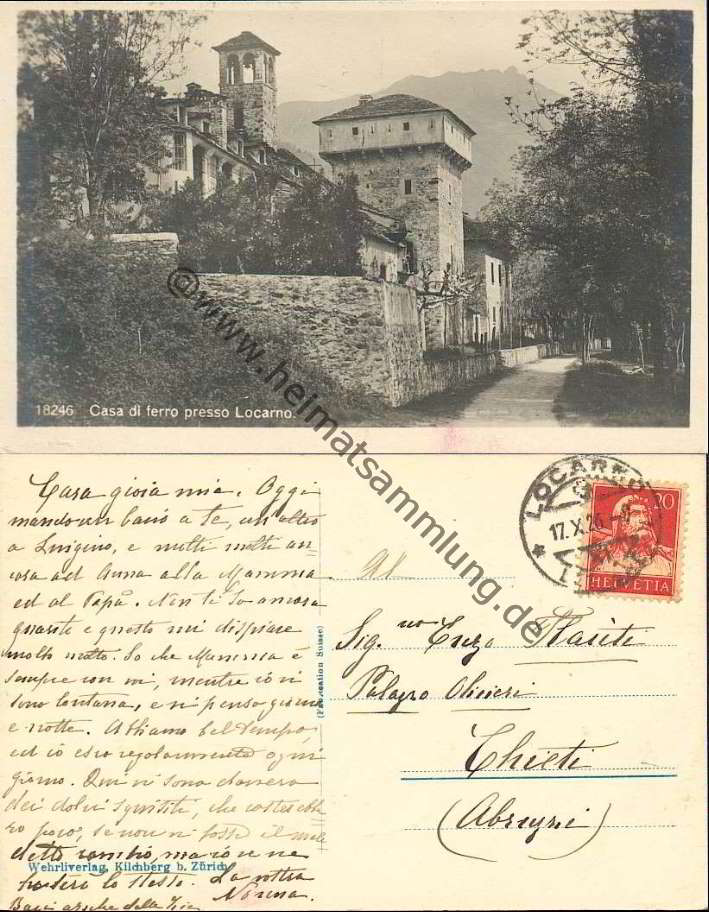 18246 Casa di ferro presso Locarno.
© www.heimatsammlung.de
Cara gioia mia. Oggi
mando un bacio a te, un altro
a Luigino, e molti molti an=
cora ad Anna alla Mamma
ed al Papà. Non le so ancora
guarite e questo mi dispiace
molto molto. So che Mamma è
sempre con voi, mentre io vi
sono lontana, e vi penso giorno
e notte. Abbiamo bel tempo,
ed io esco regolarmente ogni
giorno. Qui vi sono davvero
dei dolci squisiti, che costerebbe
ro poco, se non vi fosse il male
detto cambio, ma io ve ne
porterò lo stesso. La vostra
Nonna.
Baci anche dalla Zia
Wehrliverlag, Kilchberg b. Zürich
LOCARNO
17.X.26
20
HELVETIA
Sig.no Enzo
Palazzo Olivieri
Chieti
(Abruzzi)